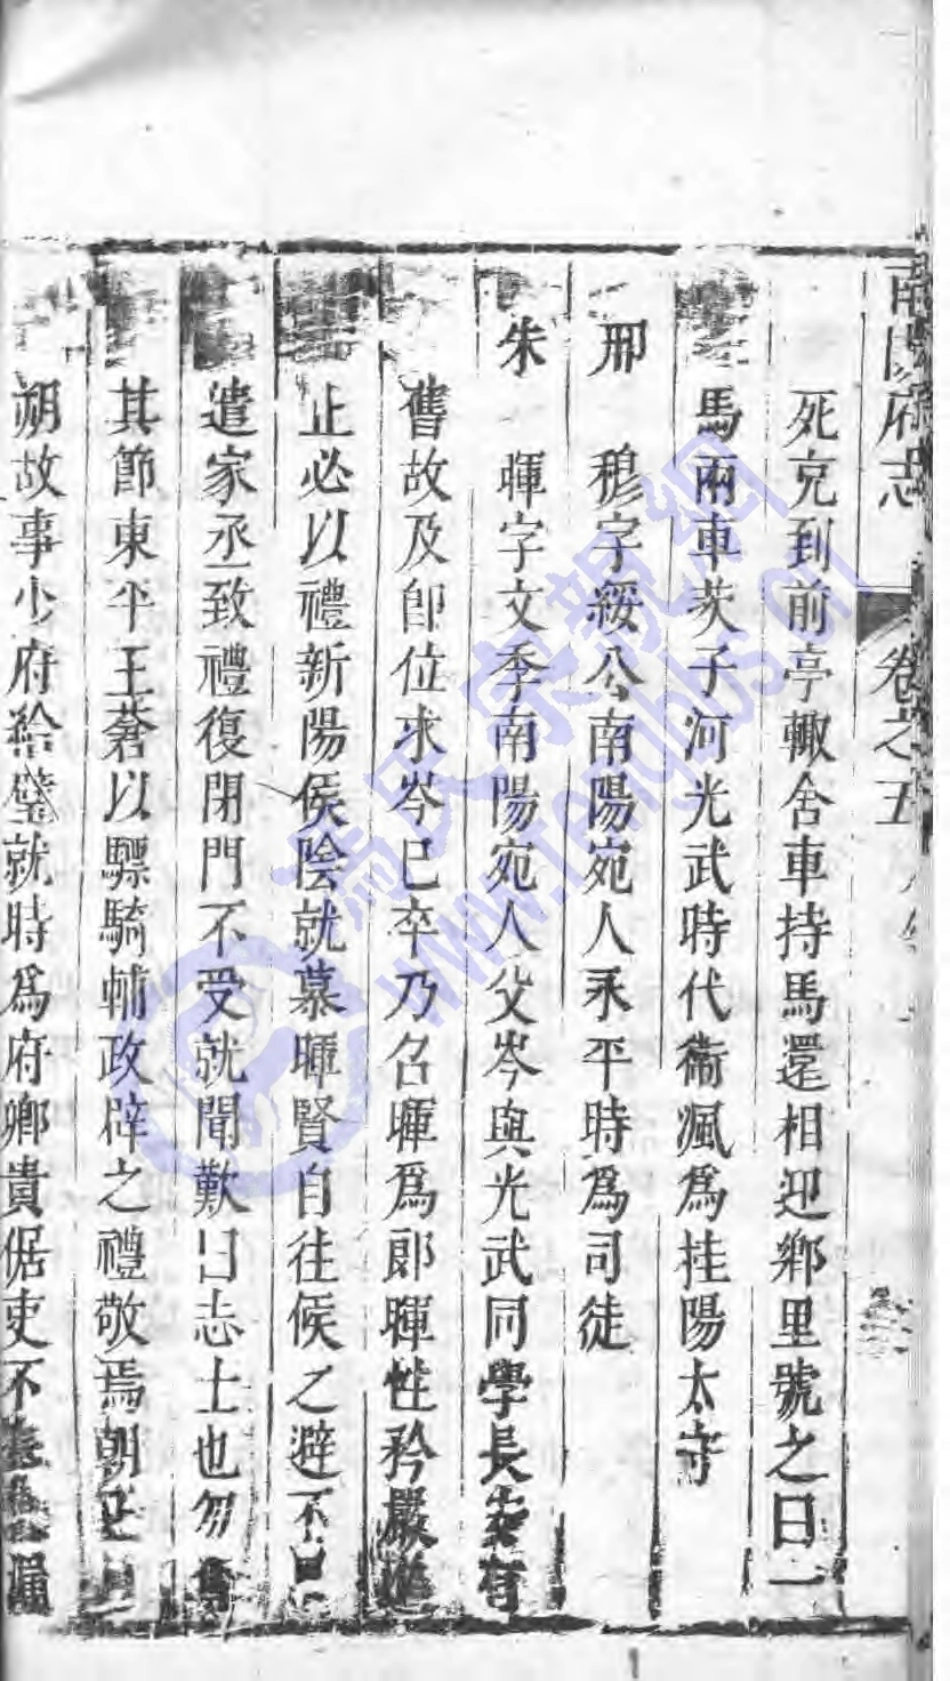 南陽府志 卷之五
死充到前亭輙舍車持馬還相迎鄉里號之曰一
馬兩車茨子河光武時代衞颯爲桂陽太守
邢 穆字綏公南陽宛人永平時爲司徒
朱 暉字文季南陽宛人父岑與光武同學長安有
舊故及卽位求岑已卒乃召暉爲郎暉性矜嚴進
止必以禮新陽侯陰就慕暉賢自往候之避不
遣家丞致禮復閉門不受就聞歎曰志士也勿
其節東平王蒼以驃騎輔政辟之禮敬焉朝正月
朔故事少府給璧就時爲府卿貴倨吏不
瑞氏宗親網